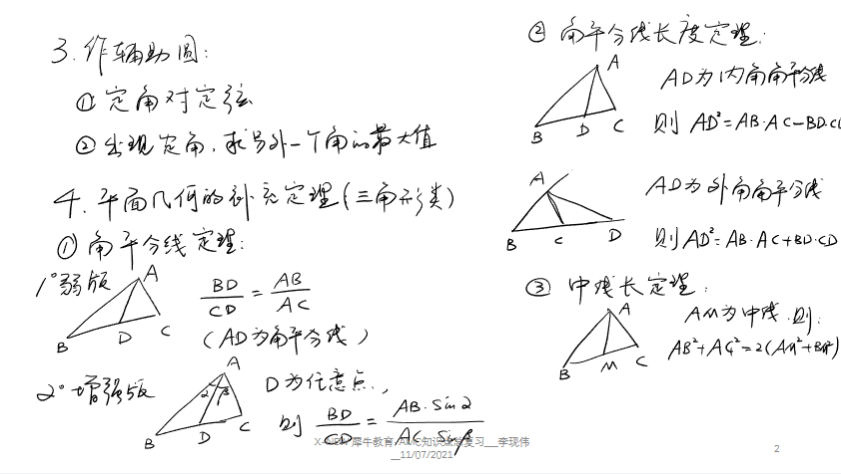 3. 作辅助圆:
① 定角对定弦
② 出现定角, 求另外一个角的最大值
4. 平面几何的补充定理(三角形类)
① 角平分线定理:
1° 弱版
A
B
D
C
BD/CD = AB/AC
(AD为角平分线)
2° 增强版
A
α
β
B
D
C
D为任意点,
则 BD/CD = AB·sinα/AC·sinβ
② 角平分线长度定理:
A
B
D
C
AD为内角角平分线
则 AD²=AB·AC-BD·CD
A
B
C
D
AD为外角角平分线
则 AD²=-AB·AC+BD·CD
③ 中线长定理:
A
B
M
C
AM为中线,则:
AB²+AC²=2(AM²+BM²)
犀牛教育
知识
复习__李现伟
__11/07/2021
2